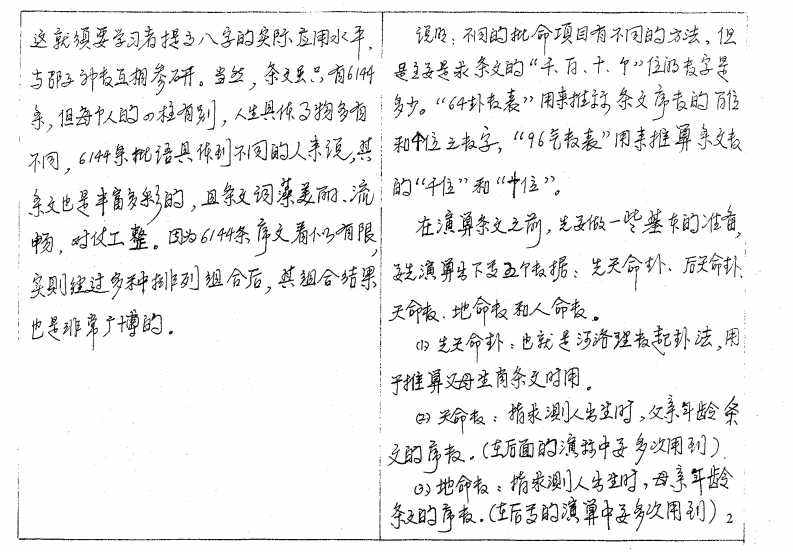 这就须要学习者提高八字的实际应用水平,
与邵子神数互相参研。当然,条文虽只有6144
条,但每个人的四柱有别,人生具体事物多有
不同,6144条批语具体到不同的人来说,其
条文也是丰富多彩的,且条文词藻美丽、流
畅,对仗工整。因为6144条序文看似有限,
实则经过多种排列组合后,其组合结果
也是非常广博的。
说明:不同的批命项目有不同的方法,但
是主要是求条文的“千、百、十、个”位的数字是
多少。“64卦数表”用来推求条文序数的百位
和个位之数字,“96气数表”用来推算条文数
的“千位”和“十位”。
在演算条文之前,先要做一些基本的准备,
要先演算出下面五个数据:先天命卦、后天命卦、
天命数、地命数和人命数。
(1)先天命卦:也就是河洛理数起卦法,用
于推算父母生肖条文时用。
(2)天命数:指求测人出生时,父亲年龄条
文的序数。(在后面的演算中要多次用到)
(3)地命数:指求测人出生时,母亲年龄
条文的序数。(在后面的演算中要多次用到)2